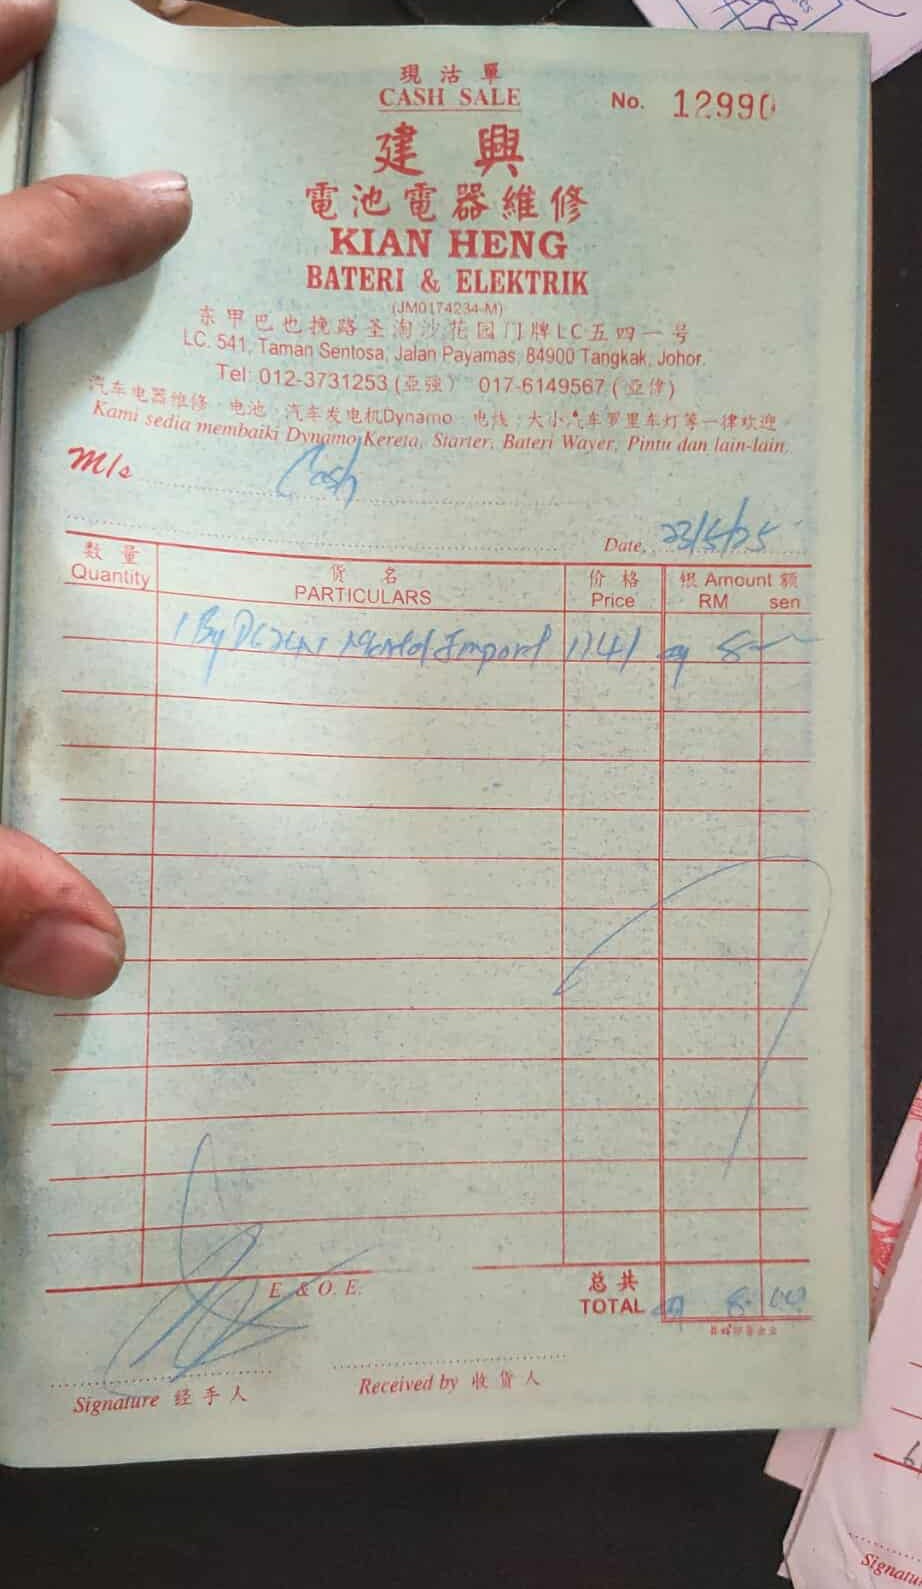 現沽單
CASH SALE
No. 12990
建興
電池電器維修
KIAN HENG
BATERI & ELEKTRIK
(JM0174234-M)
东甲巴也挽路圣淘沙花园门牌LC五四一号
LC. 541, Taman Sentosa, Jalan Payamas, 84900 Tangkak, Johor.
Tel: 012-3731253 (亞強) 017-6149567 (亞偉)
汽车电器维修 · 电池 · 汽车发电机Dynamo · 电线 · 大小汽车罗里车灯等一律欢迎
Kami sedia membaiki Dynamo Kereta, Starter, Bateri Wayer, Pintu dan lain-lain.
M/s Cash
Date, 23/5/25
数量 货名 价格 银 Amount 额
Quantity PARTICULARS Price RM sen
1 Import
E. & O. E.
总共
TOTAL 8
Signature 经手人
Received by 收货人
Signatu